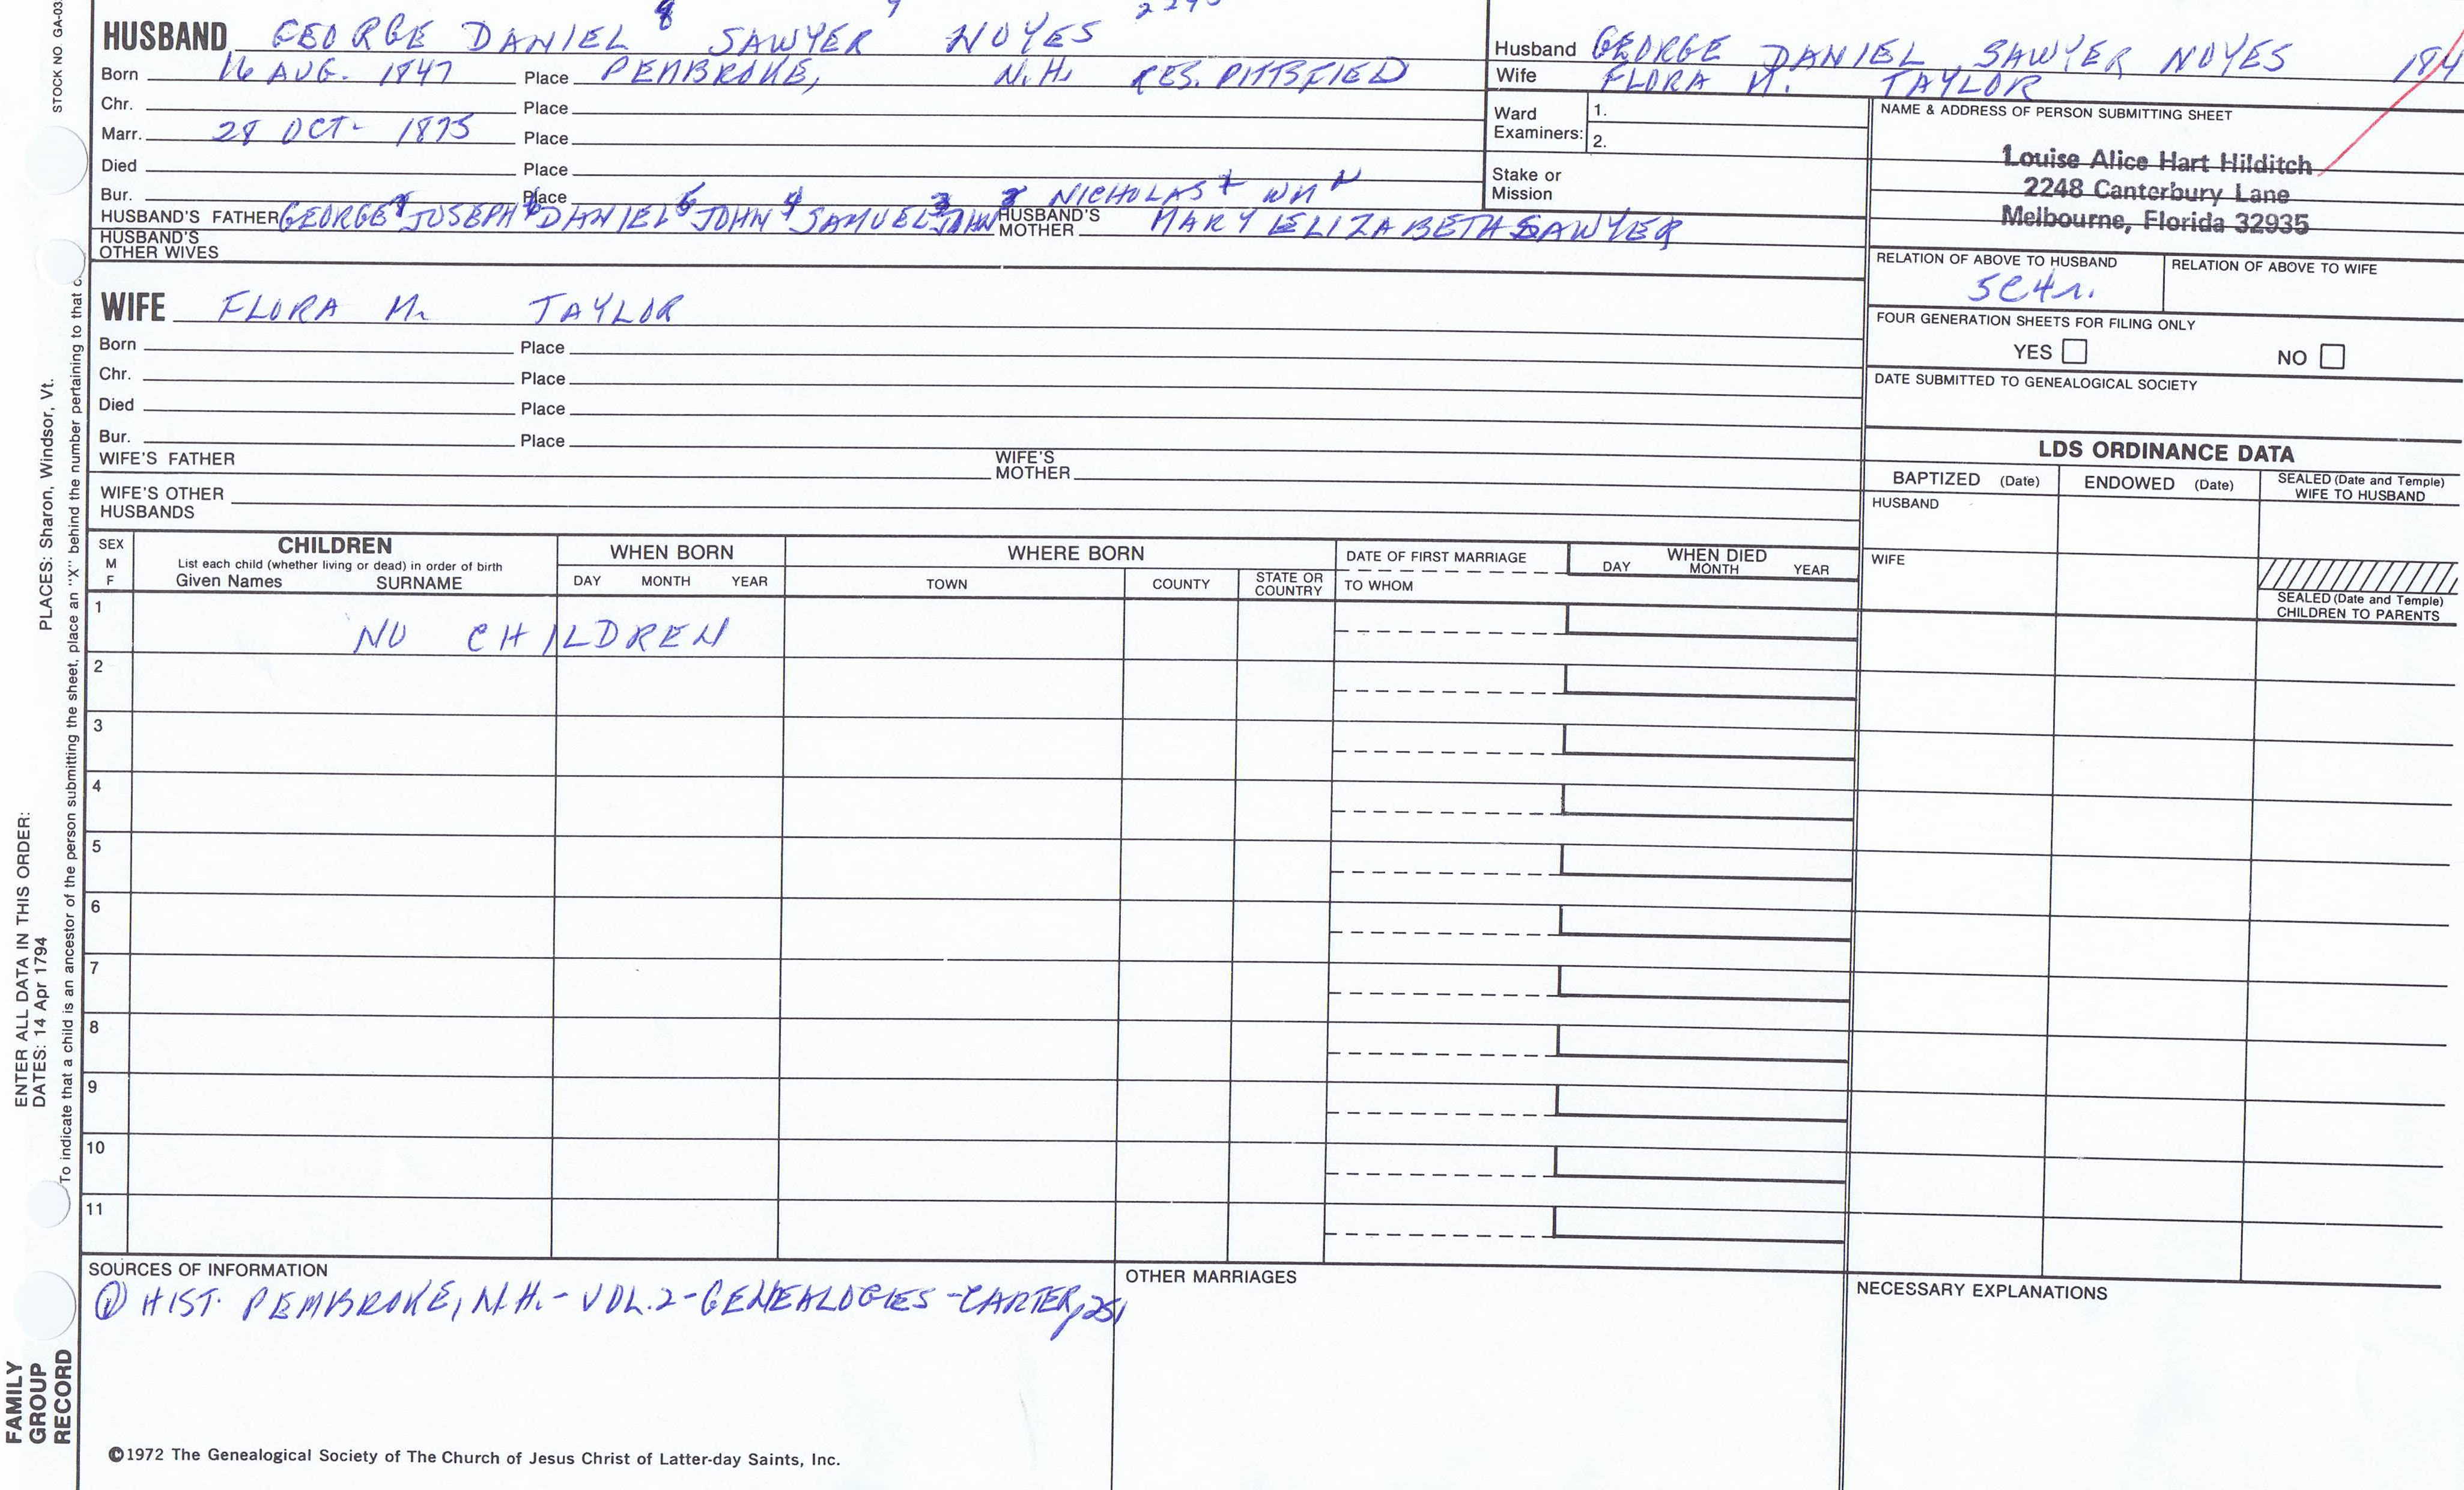 STOCK NO GA-03
HUSBAND GEORGE DANIEL 8 SAWYER NOYES
Born 16 AUG. 1847 Place PEMBROKE, N.H. RES. PITTSFIELD
Chr. Place
Marr. 28 OCT- 1875 Place
Died Place
Bur. Place NICHOLAS + WM
HUSBAND'S FATHER GEORGE JOSEPH DANIEL JOHN SAMUEL JOHN HUSBAND'S MOTHER MARY ELIZABETH SAWYER
HUSBAND'S OTHER WIVES
WIFE FLORA M. TAYLOR
Born Place
Chr. Place
Died Place
Bur. Place
WIFE'S FATHER WIFE'S MOTHER
WIFE'S OTHER HUSBANDS
Husband GEORGE DANIEL SAWYER NOYES 184
Wife FLORA M. TAYLOR
Ward Examiners: 1.
2.
Stake or Mission
NAME & ADDRESS OF PERSON SUBMITTING SHEET
Louise Alice Hart Hilditch
2248 Canterbury Lane
Melbourne, Florida 32935
RELATION OF ABOVE TO HUSBAND RELATION OF ABOVE TO WIFE
5C4r.
FOUR GENERATION SHEETS FOR FILING ONLY
YES NO
DATE SUBMITTED TO GENEALOGICAL SOCIETY
LDS ORDINANCE DATA
BAPTIZED (Date) ENDOWED (Date) SEALED (Date and Temple) WIFE TO HUSBAND
HUSBAND
WIFE
SEALED (Date and Temple) CHILDREN TO PARENTS
SEX M F
CHILDREN
List each child (whether living or dead) in order of birth
Given Names SURNAME
WHEN BORN
DAY MONTH YEAR
WHERE BORN
TOWN COUNTY STATE OR COUNTRY
DATE OF FIRST MARRIAGE
TO WHOM
WHEN DIED
DAY MONTH YEAR
1 NO CHILDREN
2
3
4
5
6
7
8
9
10
11
SOURCES OF INFORMATION
① HIST. PEMBROKE, N.H.- VOL.2-GENEALOGIES -CARTER, 251
OTHER MARRIAGES
NECESSARY EXPLANATIONS
©1972 The Genealogical Society of The Church of Jesus Christ of Latter-day Saints, Inc.
FAMILY
GROUP
RECORD
ENTER ALL DATA IN THIS ORDER:
DATES: 14 Apr 1794
PLACES: Sharon, Windsor, Vt.
To indicate that a child is an ancestor of the person submitting the sheet, place an "X" behind the number pertaining to that c